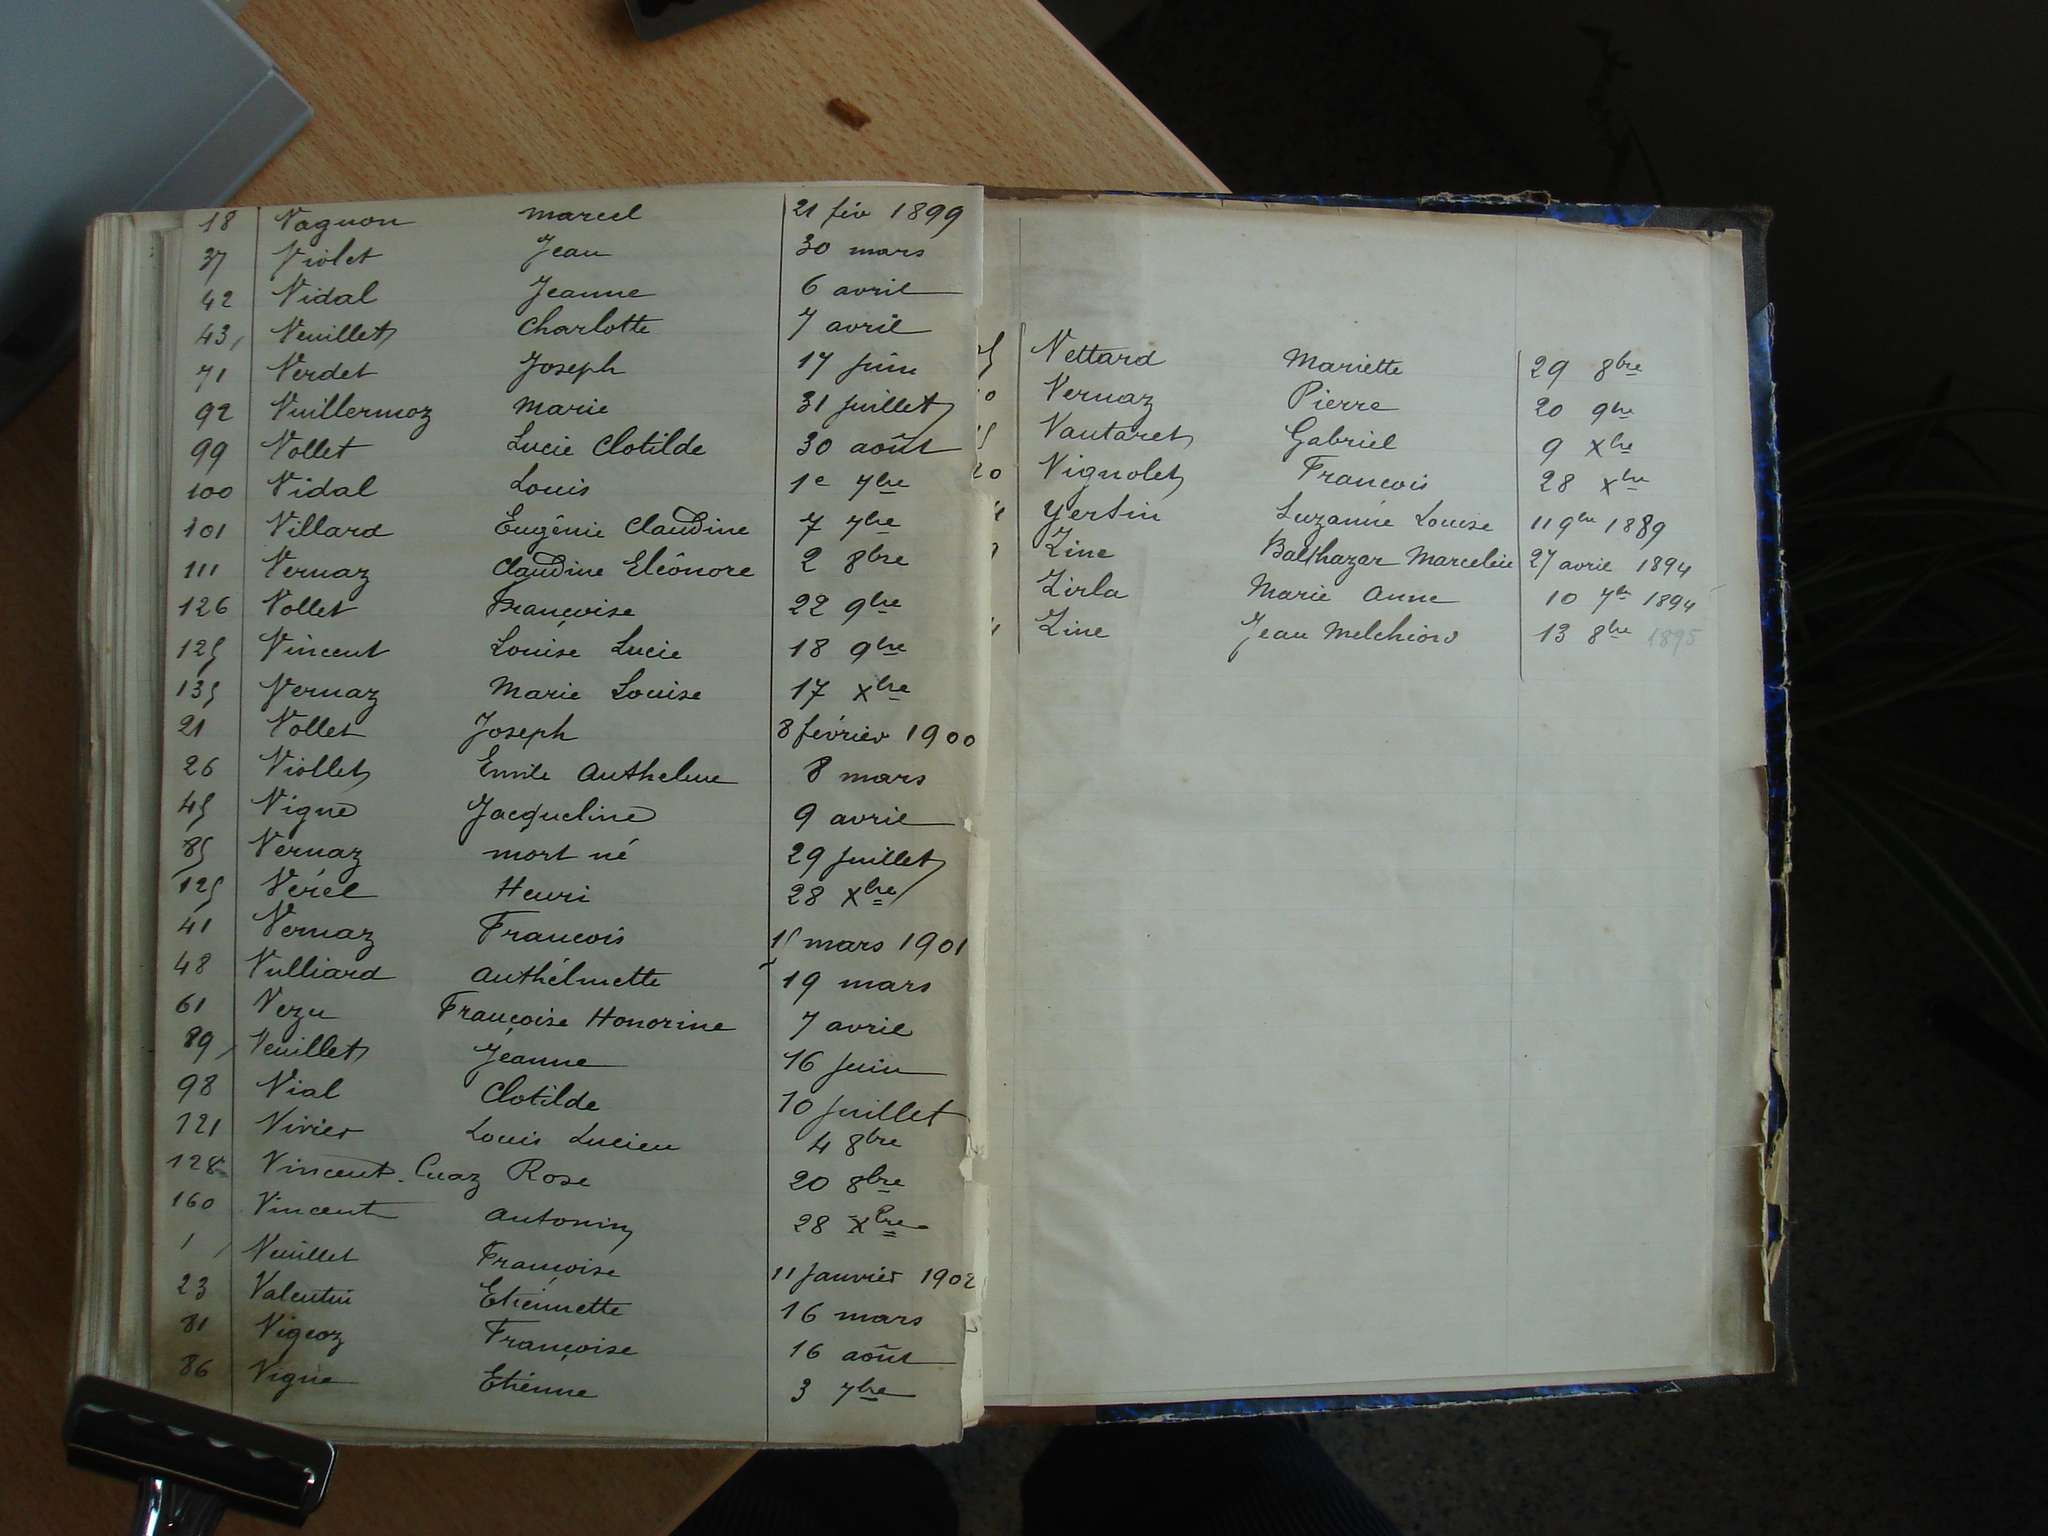 18 Vagnon Marcel 21 fév 1899
37 Violet Jean 30 mars
42 Vidal Jeanne 6 avril
43 Veuillet Charlotte 7 avril
71 Verdet Joseph 17 juin
92 Vuillermoz Marie 31 juillet
99 Vollet Lucie Clotilde 30 août
100 Vidal Louis 1e 7bre
101 Villard Eugénie Claudine 7 7bre
111 Vernaz Claudine Eléonore 2 8bre
126 Vollet Françoise 22 9bre
125 Vincent Louise Lucie 18 9bre
135 Vernaz Marie Louise 17 Xbre
21 Vollet Joseph 8 février 1900
26 Viollet Emile Anthelme 8 mars
45 Vigne Jacqueline 9 avril
85 Vernaz mort né 29 juillet
125 Verel Henri 28 Xbre
41 Vernaz François 15 mars 1901
48 Vulliard Anthélmette 19 mars
61 Vezu Françoise Honorine 7 avril
89 Veuillet Jeanne 16 juin
98 Vial Clotilde 10 juillet
121 Vivier Louis Lucien 4 8bre
128 Vincent-Cuaz Rose 20 8bre
160 Vincent Antonin 28 Xbre
1 Veuillet Françoise 11 janvier 1902
23 Valentin Etiennette 16 mars
81 Vigeoz Françoise 16 août
86 Vigne Etienne 3 7bre
Vettard Mariette 29 8bre
Vernaz Pierre 20 9bre
Vautaret Gabriel 9 Xbre
20 Vignolet François 28 Xbre
Yertin Suzanne Louise 11 9bre 1889
Zine Balthazar Marcelin 27 avril 1894
Zirla Marie Anne 10 7bre 1894
Zine Jean Melchior 13 8bre 1895